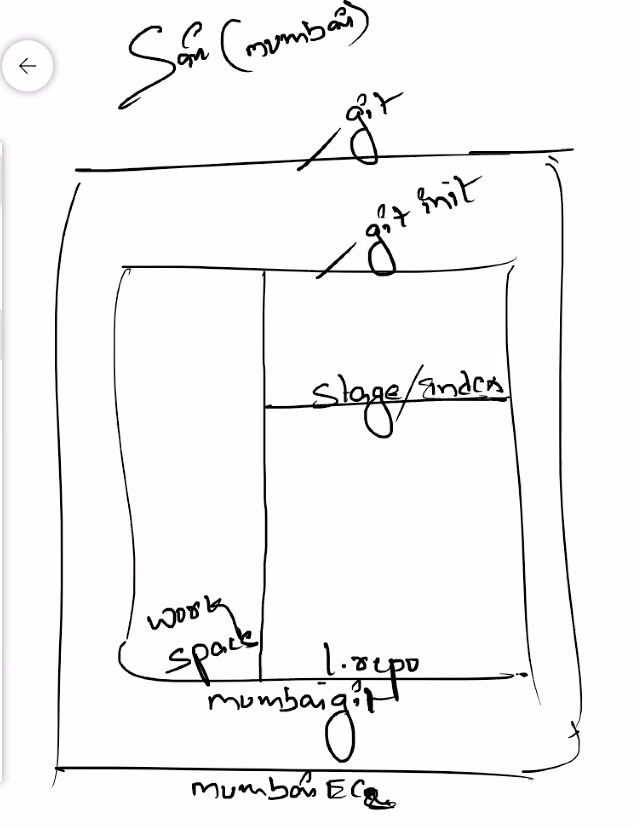 (mumbai)
git
git init
stage/index
work
space
l.repo
mumbai git
mumbai EC2